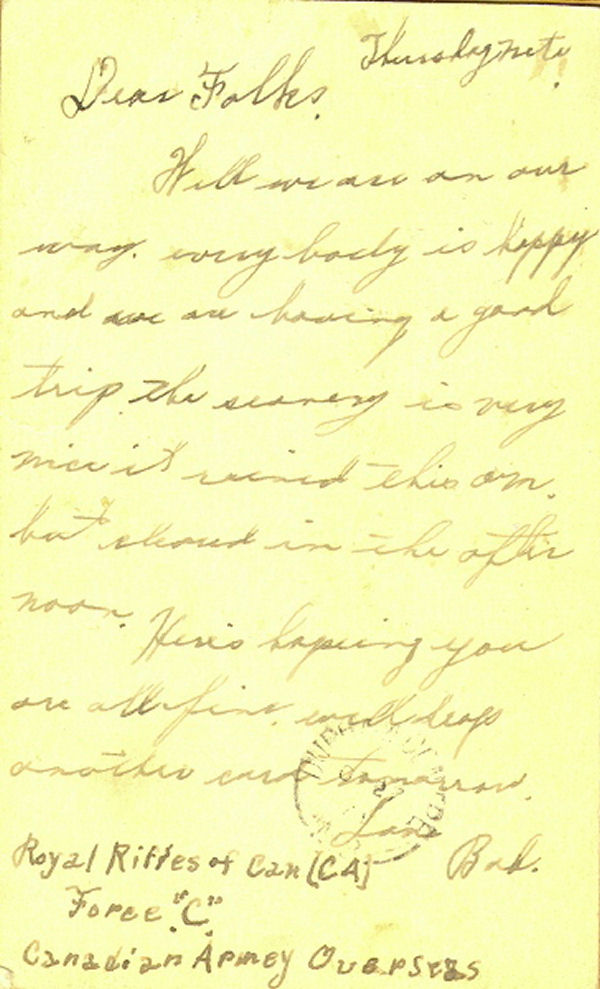 Thursday nite.
Dear Folks.
Well we are on our
way. every body is happy
and we are having a good
trip the scenery is very
nice it rained this am.
but cleared in the after
noon.
Here's hopeing you
are all fine. will drop
another card tomorrow.
Love
Bob.
Royal Rifles of Can (CA)
Force "C"
Canadian Armey Overseas